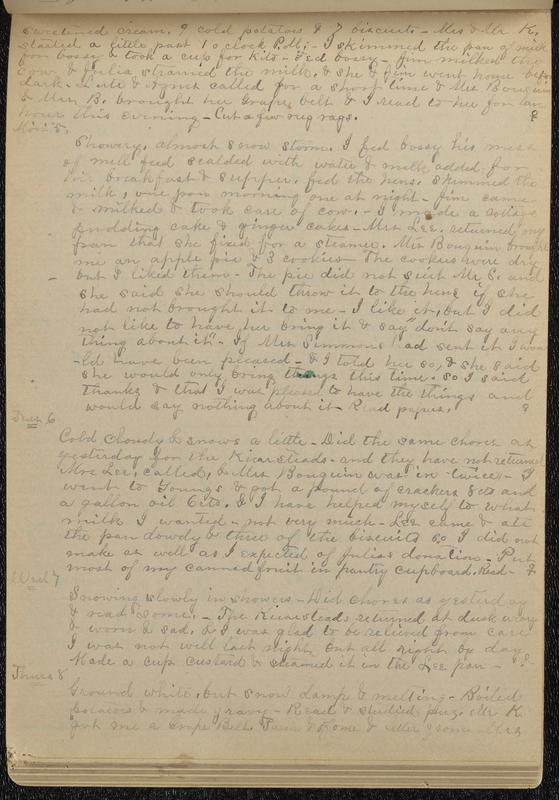 sweetened cream. 9 cold potatoes & 7 biscuits - Mrs & Mr K.
started a little past 1 o clock P.M. - I skimmed the pan of milk
for bossy & took a cup for Kits - Fed bossy - Jim milked the
cow & Julia strained the milk. & she & Jim went home before
dark - Lute & Agnes called for a short time & Mrs Bouquin
& Mrs B. brought her Grape belt & I read to her for an
hour this evening - Cut a few rug rags. &
Mon 5.
Showery, almost snow storm. I fed bossy his mess
of mill feed scalded with water & milk added for
his breakfast & supper. fed the hens. skimmed the
milk, one pan morning one at night - Jim came
& milked & took care of cow. - I made a cottage
pudding cake & ginger cakes - Mrs Lee. returned my
pan that she fixed for a steamer. Mrs Bouquin brought
me an apple pie & 3 cookies - The cookies were dry
but I liked them - The pie did not suit Mr S. and
she said she should throw it to the hens if she
had not brought it to me - I like it, but I did
not like to have her bring it & say don't say any
thing about it - If Mrs Simmons had sent it I wou
-ld have been pleased - & I told her so, & she said
she would only bring things this time. so I said
thanks & that I was pleased to have the things and
would say nothing about it - Read papers. &
Tues 6
Cold cloudy & snows a little - Did the same chores as
yesterday for the Kiersteads - and they have not returned
Mrs Lee, called, & Mrs Bouquin was in twice - I
went to Youngs & got a pound of crackers 8cts and
a gallon oil 6cts. & I have helped myself to what
milk I wanted - not very much - Lee came & ate
the pan dowdy & three of the biscuits so I did not
make as well as I expected of Julias donation - Put
most of my canned fruit in pantry cupboard. Read - &
Wed 7
Snowing slowly in showers - Did chores as yesterday
& read some. - The Kiersteads returned at dusk weary
& worn & sad. & I was glad to be relieved from care
I was not well last night but all right by day
Made a cup custard & steamed it in the Lee pan - &
Thurs 8
Ground white, but snow damp & melting - Boiled
potatoes & made gravy - Read & studied puz. Mr K
got me a Grape Belt. Farm & Home &